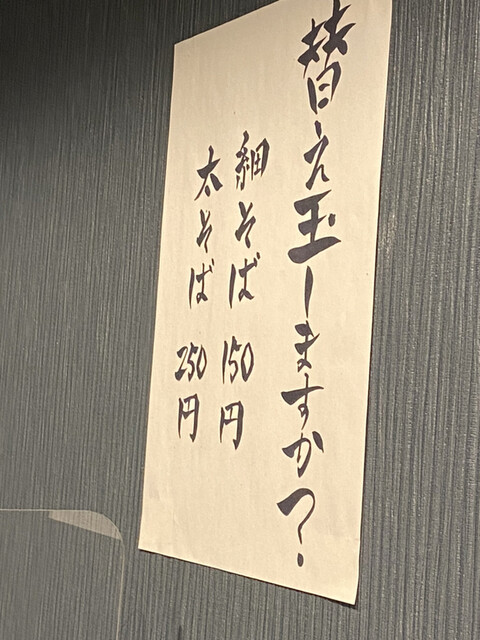 替え玉しますか?
細そば 150円
太そば 250円